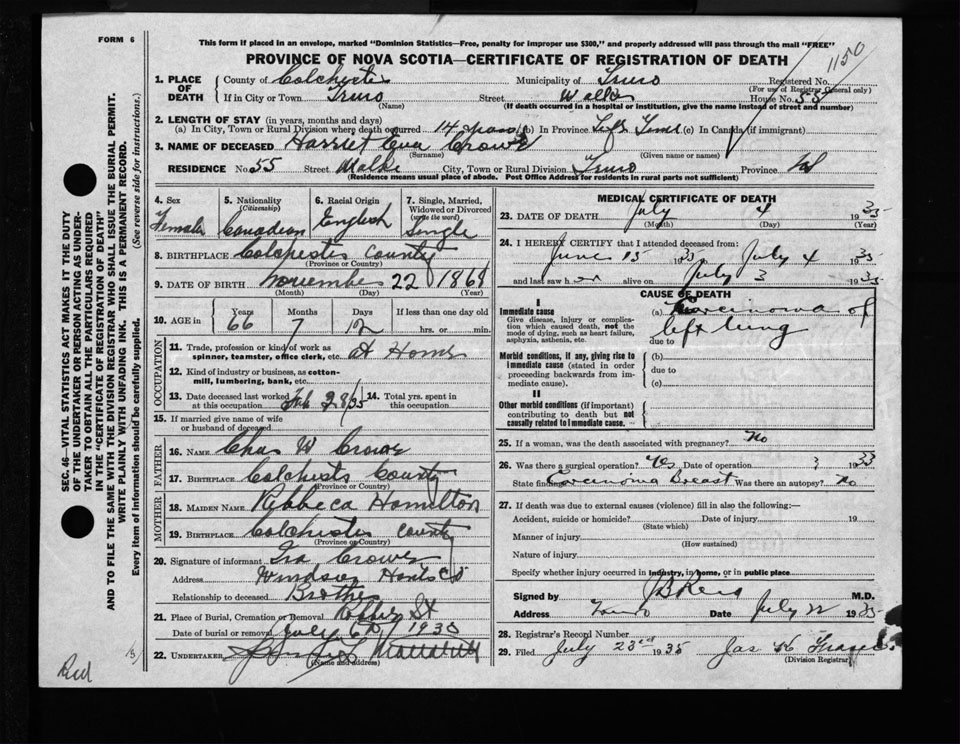 FORM 6
This form if placed in an envelope, marked "Dominion Statistics—Free, penalty for improper use $300," and properly addressed will pass through the mail "FREE"
1150
PROVINCE OF NOVA SCOTIA—CERTIFICATE OF REGISTRATION OF DEATH
1. PLACE OF DEATH
County of Colchester Municipality of Truro Registered No.
(For use of Registrar General only)
If in City or Town Truro Street House No. 55
(Name) (If death occurred in a hospital or institution, give the name instead of street and number)
2. LENGTH OF STAY (in years, months and days)
(a) In City, Town or Rural Division where death occurred 14 years (b) In Province Life Time (c) In Canada (if immigrant)
3. NAME OF DECEASED Harriet Eva Crowe
(Surname) (Given name or names)
RESIDENCE No. 55 Street City, Town or Rural Division Truro Province
(Residence means usual place of abode. Post Office Address for residents in rural parts not sufficient)
4. Sex Female
5. Nationality (Citizenship) Canadian
6. Racial Origin English
7. Single, Married, Widowed or Divorced (write the word) Single
8. BIRTHPLACE Colchester County
(Province or Country)
9. DATE OF BIRTH November 22 1868
(Month) (Day) (Year)
10. AGE in Years Months Days If less than one day old
66 7 12 hrs. or min.
OCCUPATION
11. Trade, profession or kind of work as spinner, teamster, office clerk, etc. At Home
12. Kind of industry or business, as cotton-mill, lumbering, bank, etc.
13. Date deceased last worked at this occupation Feb 28/35 14. Total yrs. spent in this occupation
15. If married give name of wife or husband of deceased
FATHER
16. NAME Chas W Crowe
17. BIRTHPLACE Colchester County
(Province or Country)
MOTHER
18. MAIDEN NAME Rebbeca Hamilton
19. BIRTHPLACE Colchester County
(Province or Country)
20. Signature of informant Ira Crowe
Address Windsor Hants Co
Relationship to deceased Brother
21. Place of Burial, Cremation or Removal Robie St
Date of burial or removal July 6th 1935
22. UNDERTAKER
(Name and address)
MEDICAL CERTIFICATE OF DEATH
23. DATE OF DEATH July 4 1935
(Month) (Day) (Year)
24. I HEREBY CERTIFY that I attended deceased from:
June 15 1935 July 4 1935
and last saw her alive on July 3 1935
CAUSE OF DEATH
I
Immediate cause
Give disease, injury or complication which caused death, not the mode of dying, such as heart failure, asphyxia, asthenia, etc.
(a) Carcinoma of
due to left lung
Morbid conditions, if any, giving rise to immediate cause (stated in order proceeding backwards from immediate cause).
(b)
due to
(c)
II
Other morbid conditions (if important) contributing to death but not causally related to immediate cause.
25. If a woman, was the death associated with pregnancy? No
26. Was there a surgical operation? Yes Date of operation ? 1933
State findings Carcinoma Breast Was there an autopsy? No
27. If death was due to external causes (violence) fill in also the following:—
Accident, suicide or homicide? Date of injury 19
(State which)
Manner of injury
(How sustained)
Nature of injury
Specify whether injury occurred in industry, in home, or in public place
Signed by M.D.
Address Truro Date July 22 1935
28. Registrar's Record Number
29. Filed July 23rd 1935 Jas
(Division Registrar)
SEC. 46—VITAL STATISTICS ACT MAKES IT THE DUTY
OF THE UNDERTAKER OR PERSON ACTING AS UNDER-
TAKER TO OBTAIN ALL THE PARTICULARS REQUIRED
IN THE "CERTIFICATE OF REGISTRATION OF DEATH"
AND TO FILE THE SAME WITH THE DIVISION REGISTRAR WHO SHALL ISSUE THE BURIAL PERMIT.
WRITE PLAINLY WITH UNFADING INK. THIS IS A PERMANENT RECORD.
Every item of information should be carefully supplied. (See reverse side for instructions.)